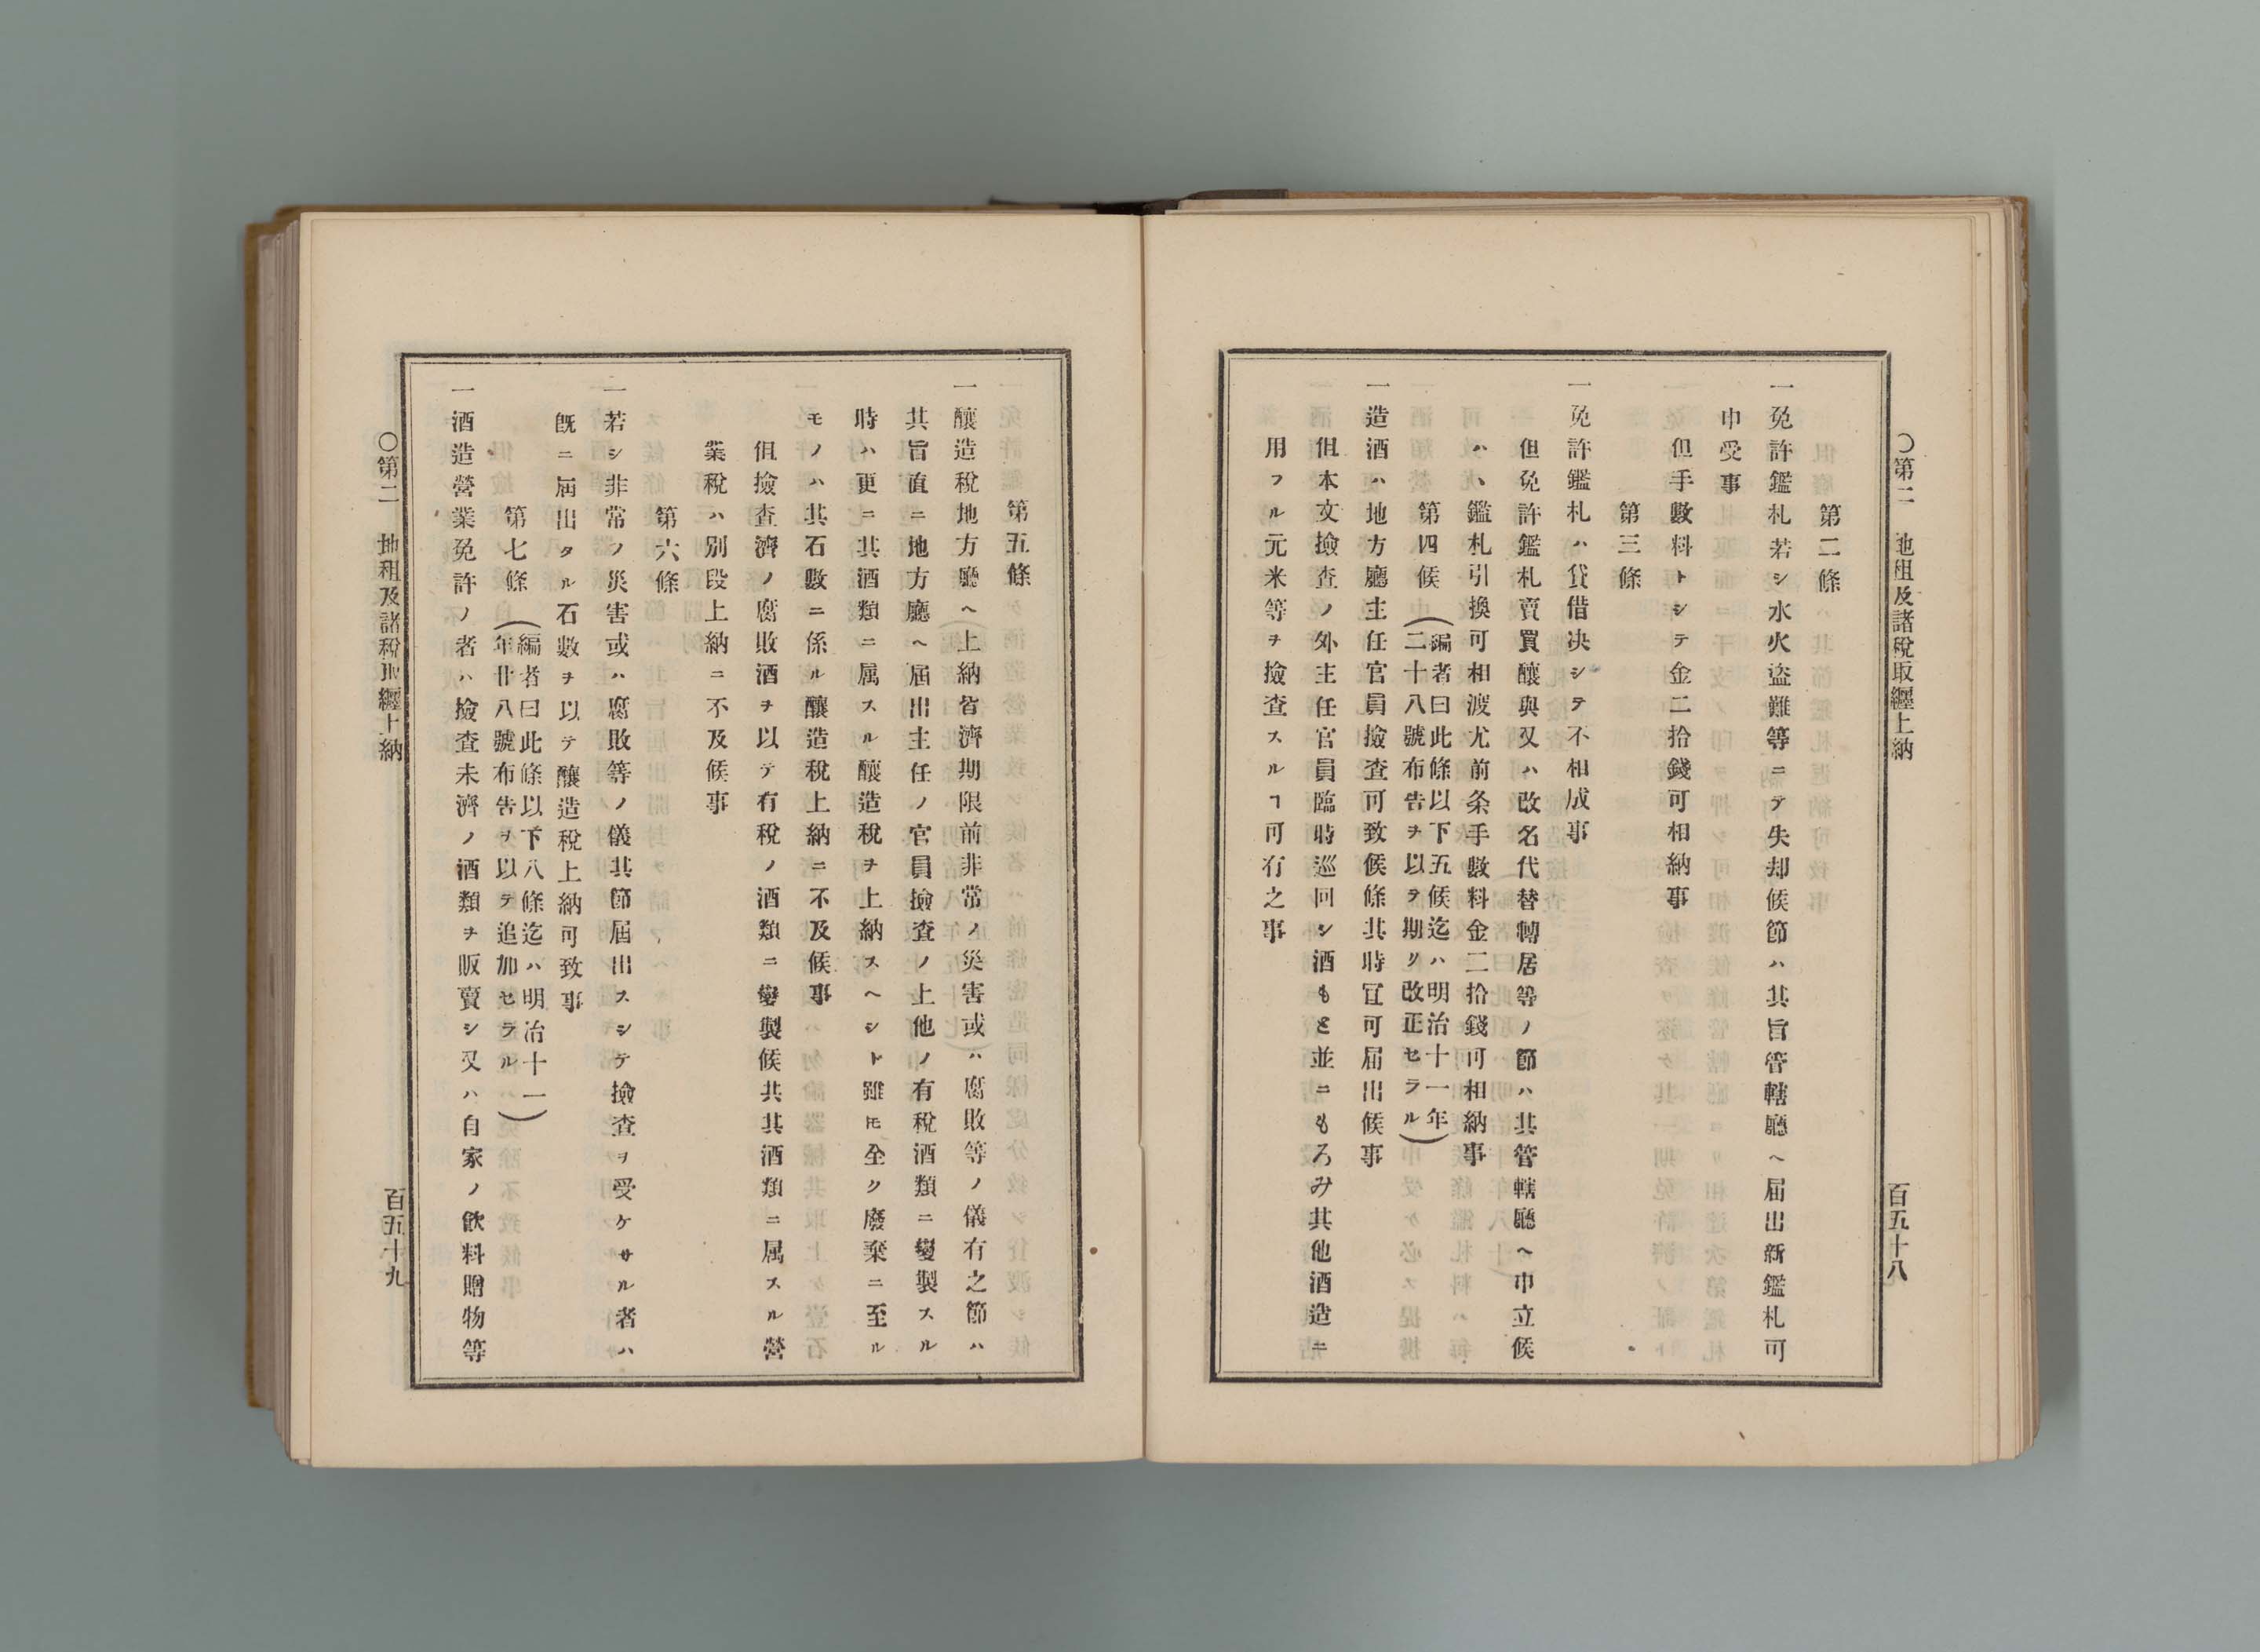 〇第二　地租及諸稅取纒上納　百五十八
第二條
一免許鑑札若シ水火盜難等ニテ失却候節ハ其旨管轄廳ヘ届出新鑑札可
申受事
但手數料トシテ金二拾錢可相納事
第三條
一免許鑑札ハ貸借決シテ不相成事
但免許鑑札賣買釀與又ハ改名代替轉居等ノ節ハ其管轄廳ヘ申立候
ハヽ鑑札引換可相渡尤前条手數料金二拾錢可相納事
第四候（編者曰此條以下五候迄ハ明治十一年
二十八號布告ヲ以ヲ期リ改正セラル）
一造酒ハ地方廳主任官員撿查可致候條其時〻可届出候事
但本文撿查ノ外主任官員臨時巡回シ酒もと並ニもろみ其他酒造ニ
用フル元米等ヲ撿查スルヿ可有之事
第五條
一釀造稅地方廳ヘ上納皆濟期限前非常ノ災害或ハ腐敗等ノ儀有之節ハ
其旨直ニ地方廳ヘ届出主任ノ官員撿查ノ上他ノ有稅酒類ニ變製スル
時ハ更ニ其酒類ニ属スル釀造稅ヲ上納スヘシト雖𪜈全ク廢棄ニ至ル
モノハ其石數ニ係ル釀造稅上納ニ不及候事
但撿查濟ノ腐敗酒ヲ以テ有稅ノ酒類ニ變製候共其酒類ニ属スル營
業稅ハ別段上納ニ不及候事
第六條
一若シ非常ノ災害或ハ腐敗等ノ儀其節届出スシテ撿查ヲ受ケサル者ハ
既ニ届出タル石數ヲ以テ釀造稅上納可致事
第七條（編者曰此條以下八條迄ハ明治十一
年廿八號布告ヲ以テ追加セラル）
一酒造營業免許ノ者ハ撿查未濟ノ酒類ヲ販賣シ又ハ自家ノ飮料贈物等
〇第二　地租及諸稅取纒上納　百五十九